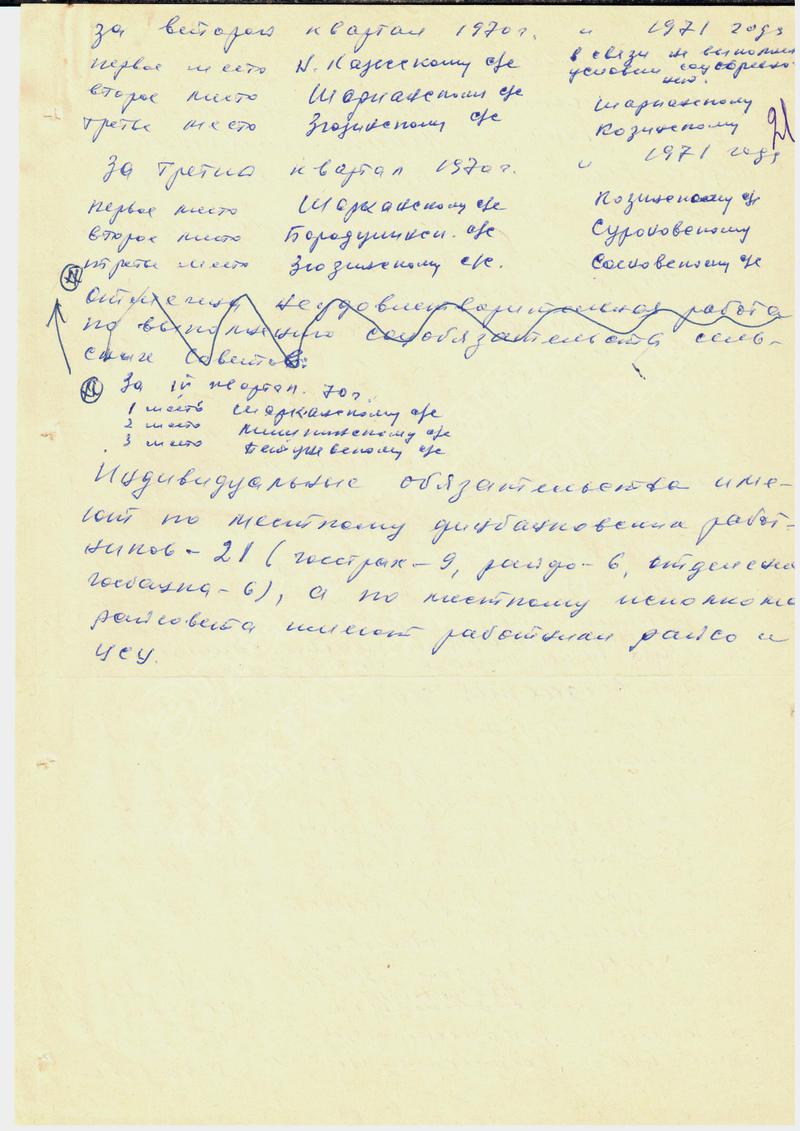 за второй квартал 1970г. и 1971 года
первое место Н. Казесскому с/с в связи не выполнен
условий соцсоревно-
ний.
второе место Шарканскому с/с Шарканскому
третье место Зюзинскому с/с Козинскому
21
За третий квартал 1970г. и 1971 года
первое место Шарканскому с/с Козинскому с/с
второе место Бородулинск. с/с Суроновскому
третье место Зюзинскому с/с. Сосновскому с/с
отмечена неудовлетворительная работа
по выполнению соцобязательств сель-
ских советов.
За IV квартал. 70г.
1 место Шарканскому с/с
2 место с/с
3 место с/с
Индивидуальные обязательства име-
ют по местному финбанковских работ-
ников - 21 (госстрах - 9, райфо - 6, отделени
госбанка - 6), а по местному исполкома
райсовета имеют работники райсо и
ЦСУ.